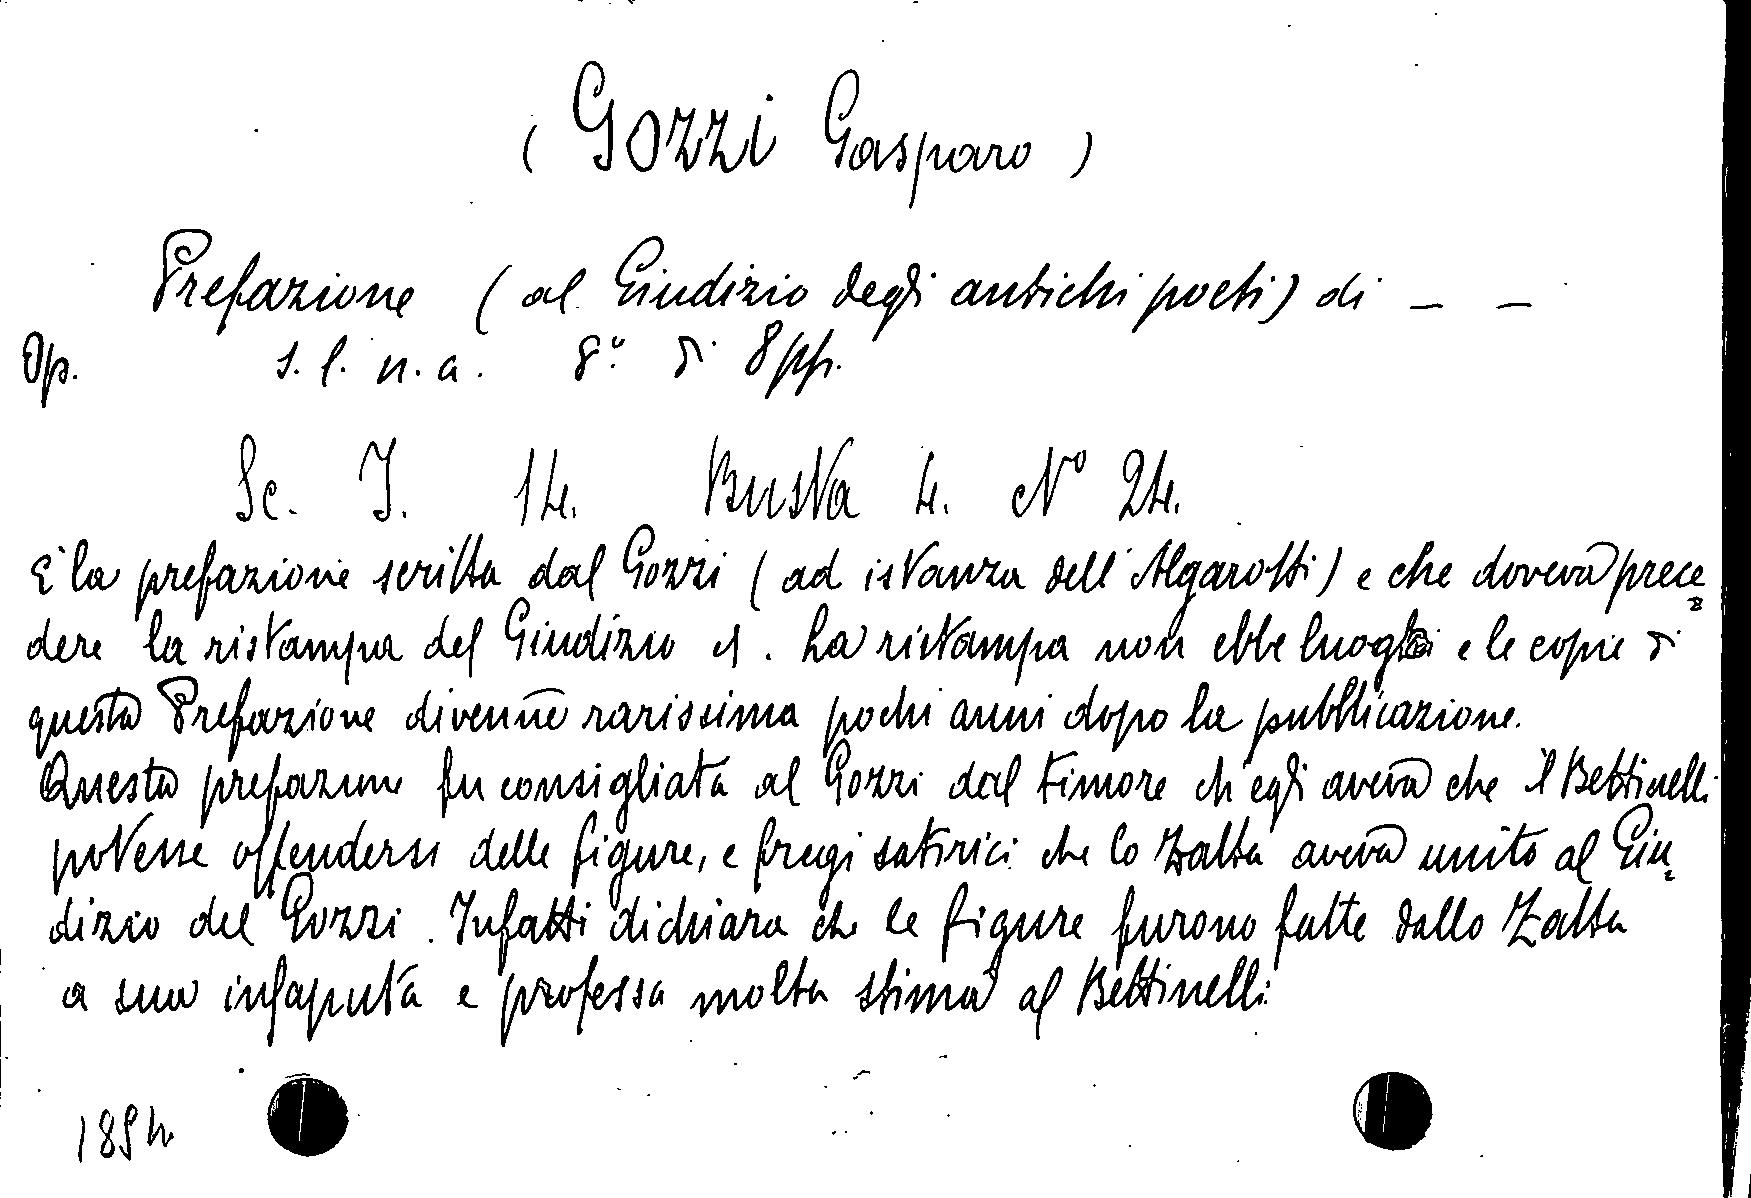 ( Gozzi Gasparo )
Prefazione (al Giudizio degli antichi poeti) di _ _
Op. s. l. n. a. 8º di 8 pp.
Sc. I. 14. Busta 4. Nº 24.
E' la prefazione scritta dal Gozzi (ad istanza dell'Algarotti) e che doveva prece=
dere la ristampa del Giudizio . La ristampa non ebbe luogo e le copie di
questa Prefazione divenne rarissima pochi anni dopo la pubblicazione.
Questa prefazione fu consigliata al Gozzi dal timore ch'egli aveva che il Bettinelli
potesse offendersi delle figure, e fregi satirici che lo Zatta aveva unito al Giu=
dizio del Gozzi. Infatti dichiara che le figure furono fatte dallo Zatta
a sua insaputa e professa molta stima al Bettinelli